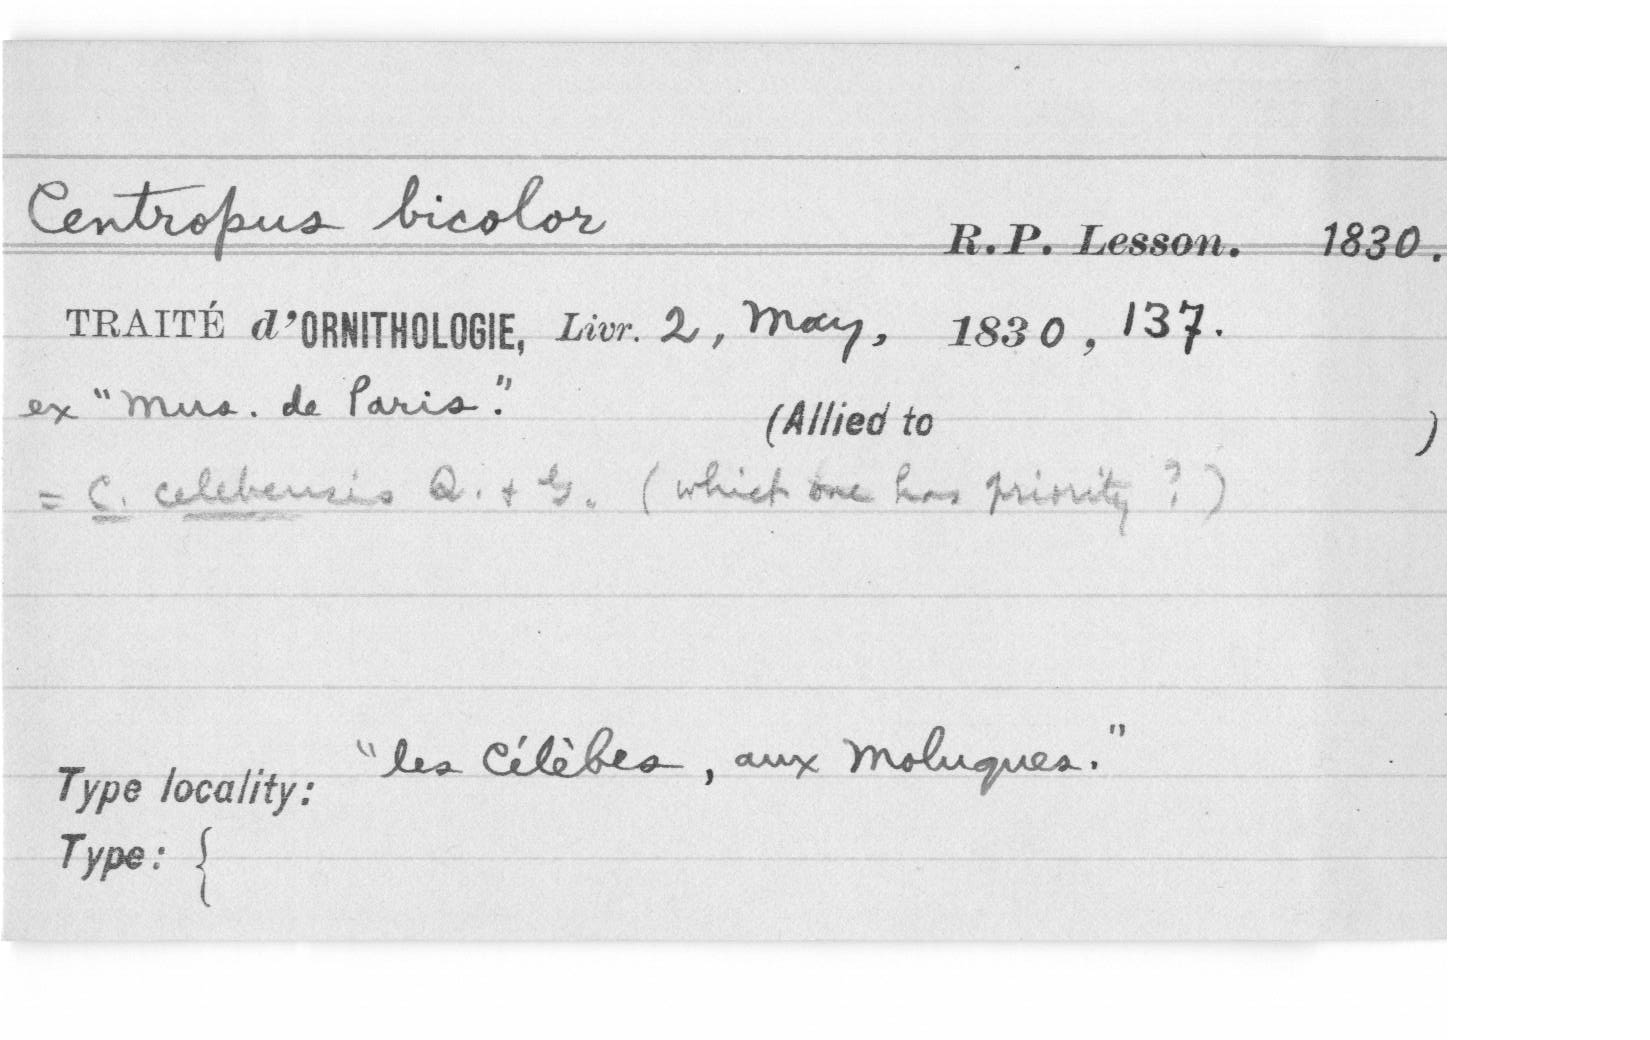 Centropus bicolor R.P. Lesson. 1830.
TRAITÉ d'ORNITHOLOGIE, Livr. 2, May, 1830, 137.
ex "Mus. de Paris." (Allied to )
= C. celebensis Q. + G. (which one has priority?)
Type locality: "les Célèbes, aux Moluques."
Type: {